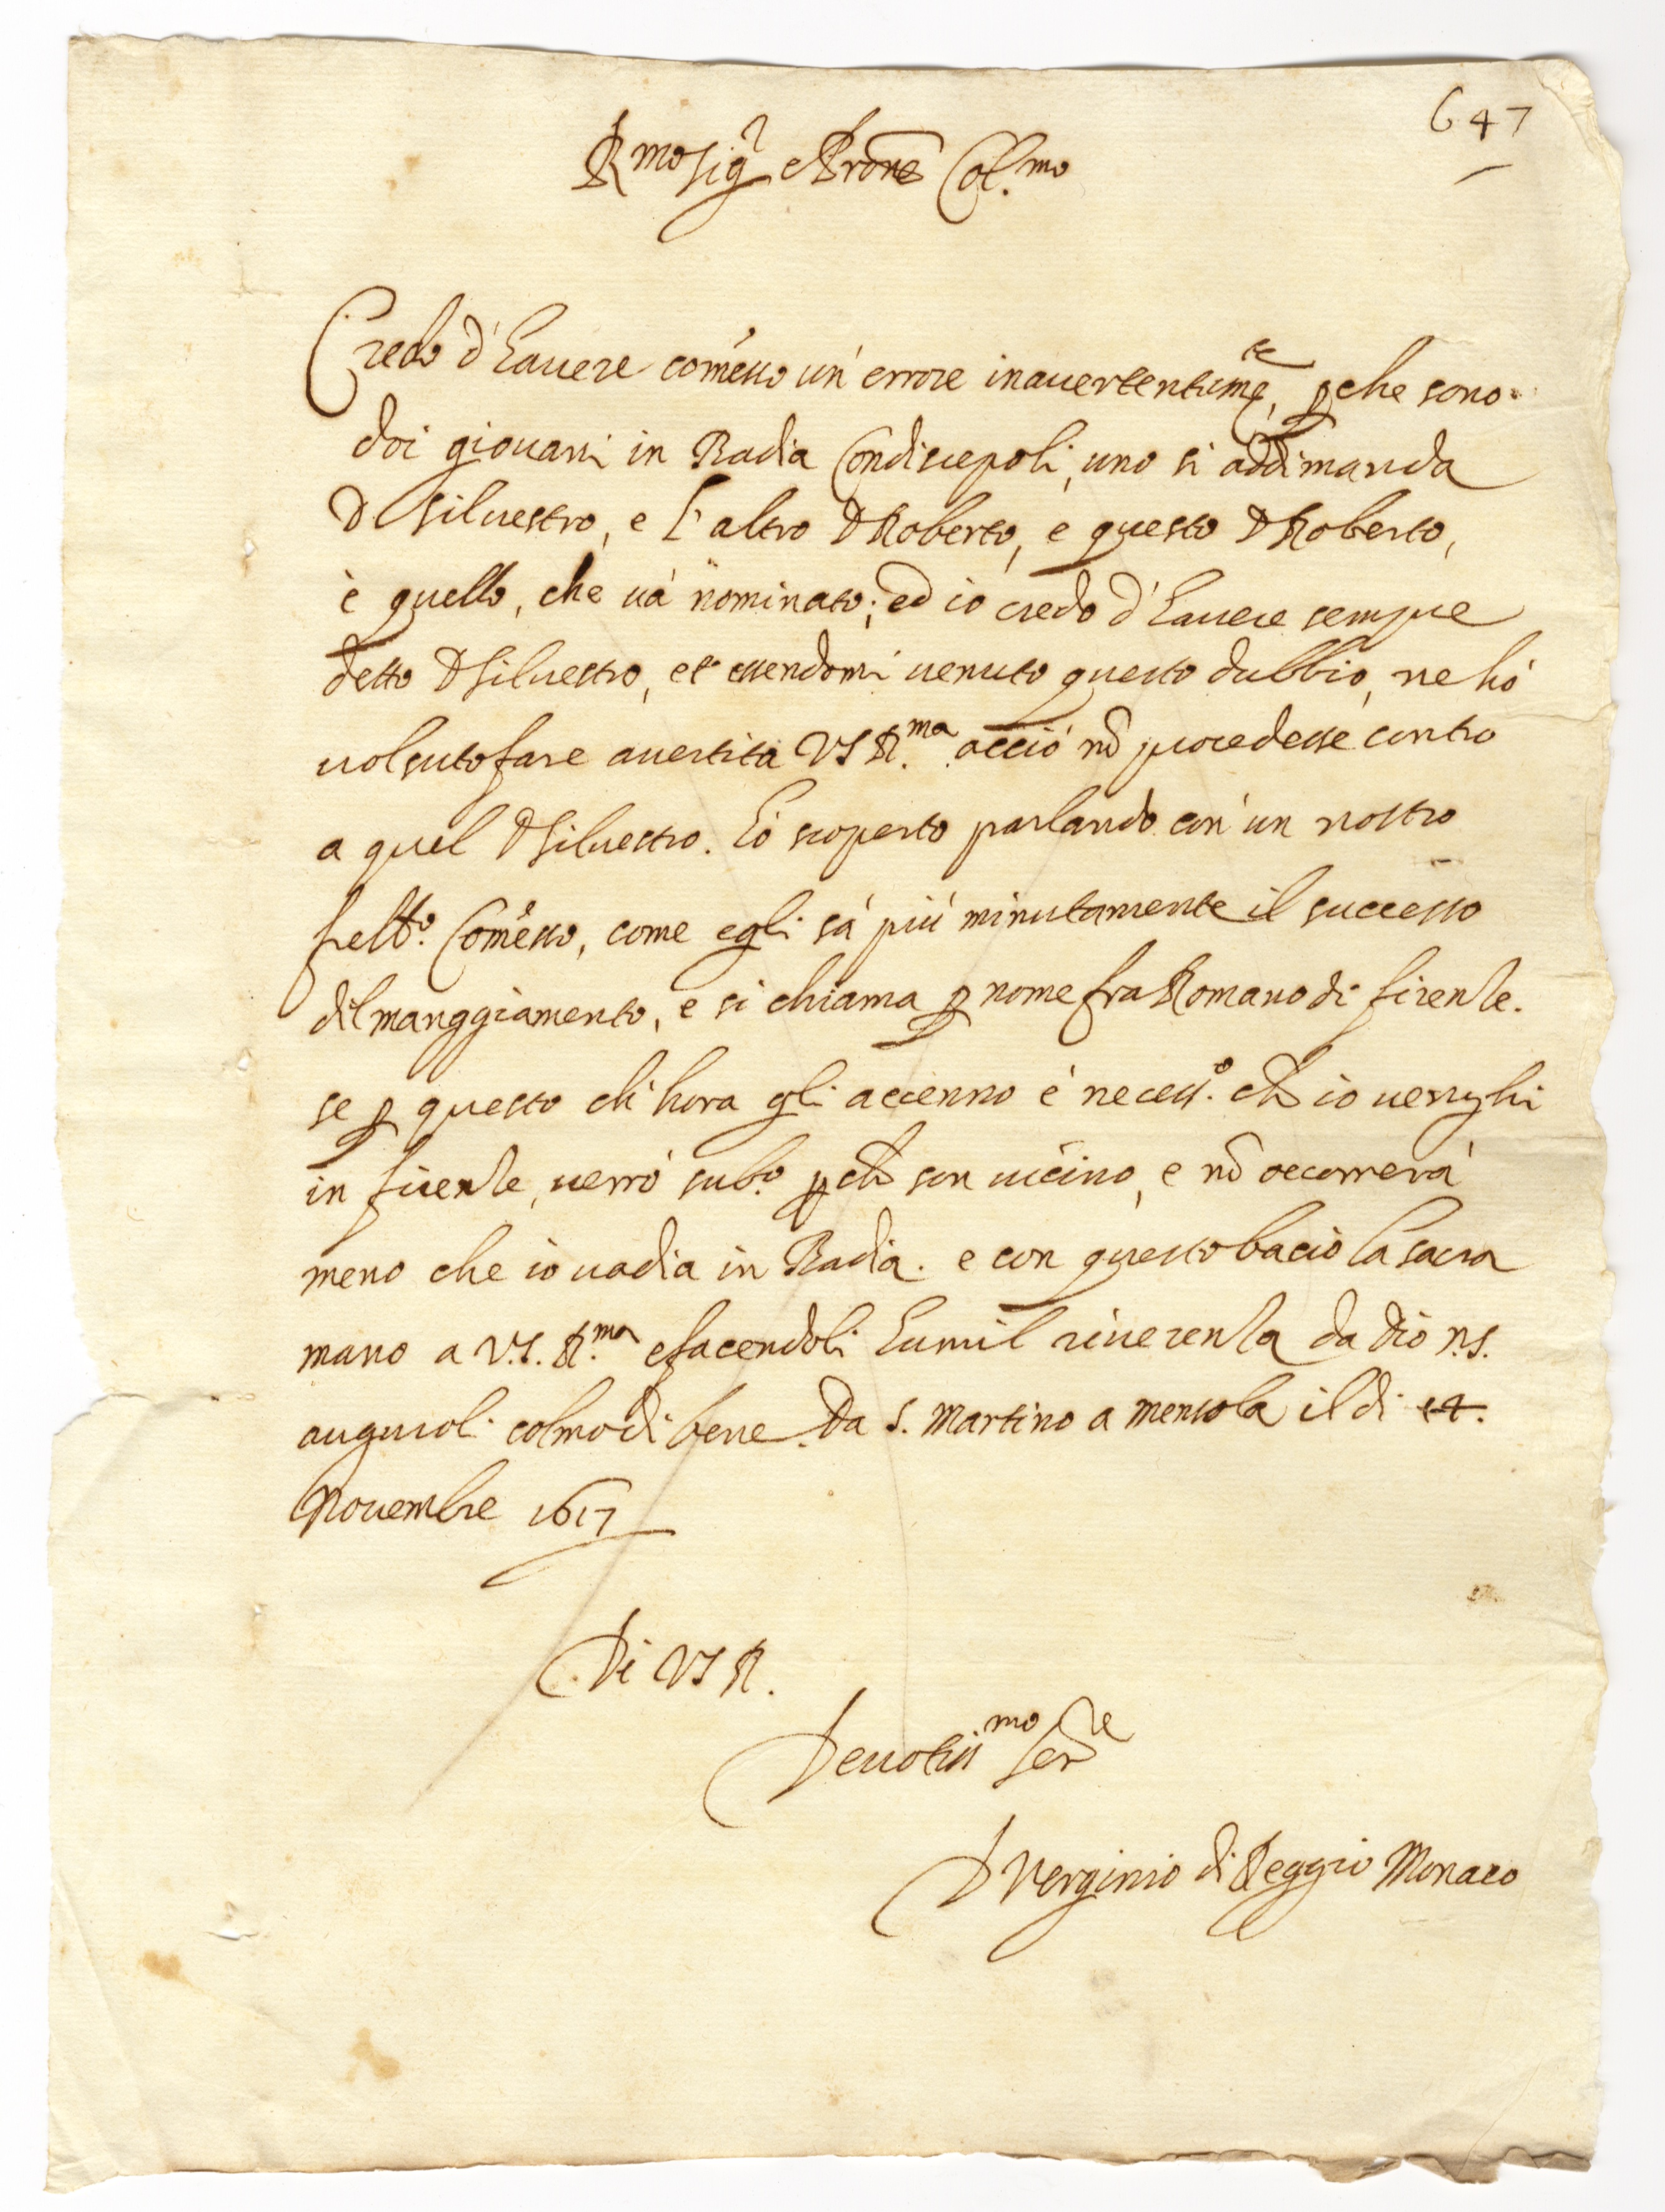 647
R.mo Sig.r e Prone Col.mo
Credo d'havere comesso un' errore inavertentem.te, p che sono
doi giovani in Badia Condiscepoli, uno si addimanda
D Silvestro, e l'altro D Roberto, e questo D Roberto,
è quello, che và nominato; ed io credo d'havere sempre
detto D Silvestro, et essendomi venuto questo dubbio, ne hò
volsuto fare avertita VS R.ma acciò nō procedesse contro
a quel D Silvestro. hò scoperto parlando con' un nostro
Comesso, come egli sà più minutamente il successo
dil manggiamento, e si chiama p nome fra Romano di firenze.
se p questo ch' hora gli accenno è necess.o ch io venghi
in firenze, verrò sub.o p ch son vicino, e nō occorrerà
meno che io vadia in Badia. e con questo bacio la sacra
mano a V.S. R.ma e facendoli humil riverenza da Dio N.S.
auguroli colmo di bene. Da S. Martino a Mensola il di 14.
Novembre 1617
Di VS R.
Devotiss.mo Ser.re
D Verginio di Reggio Monaco